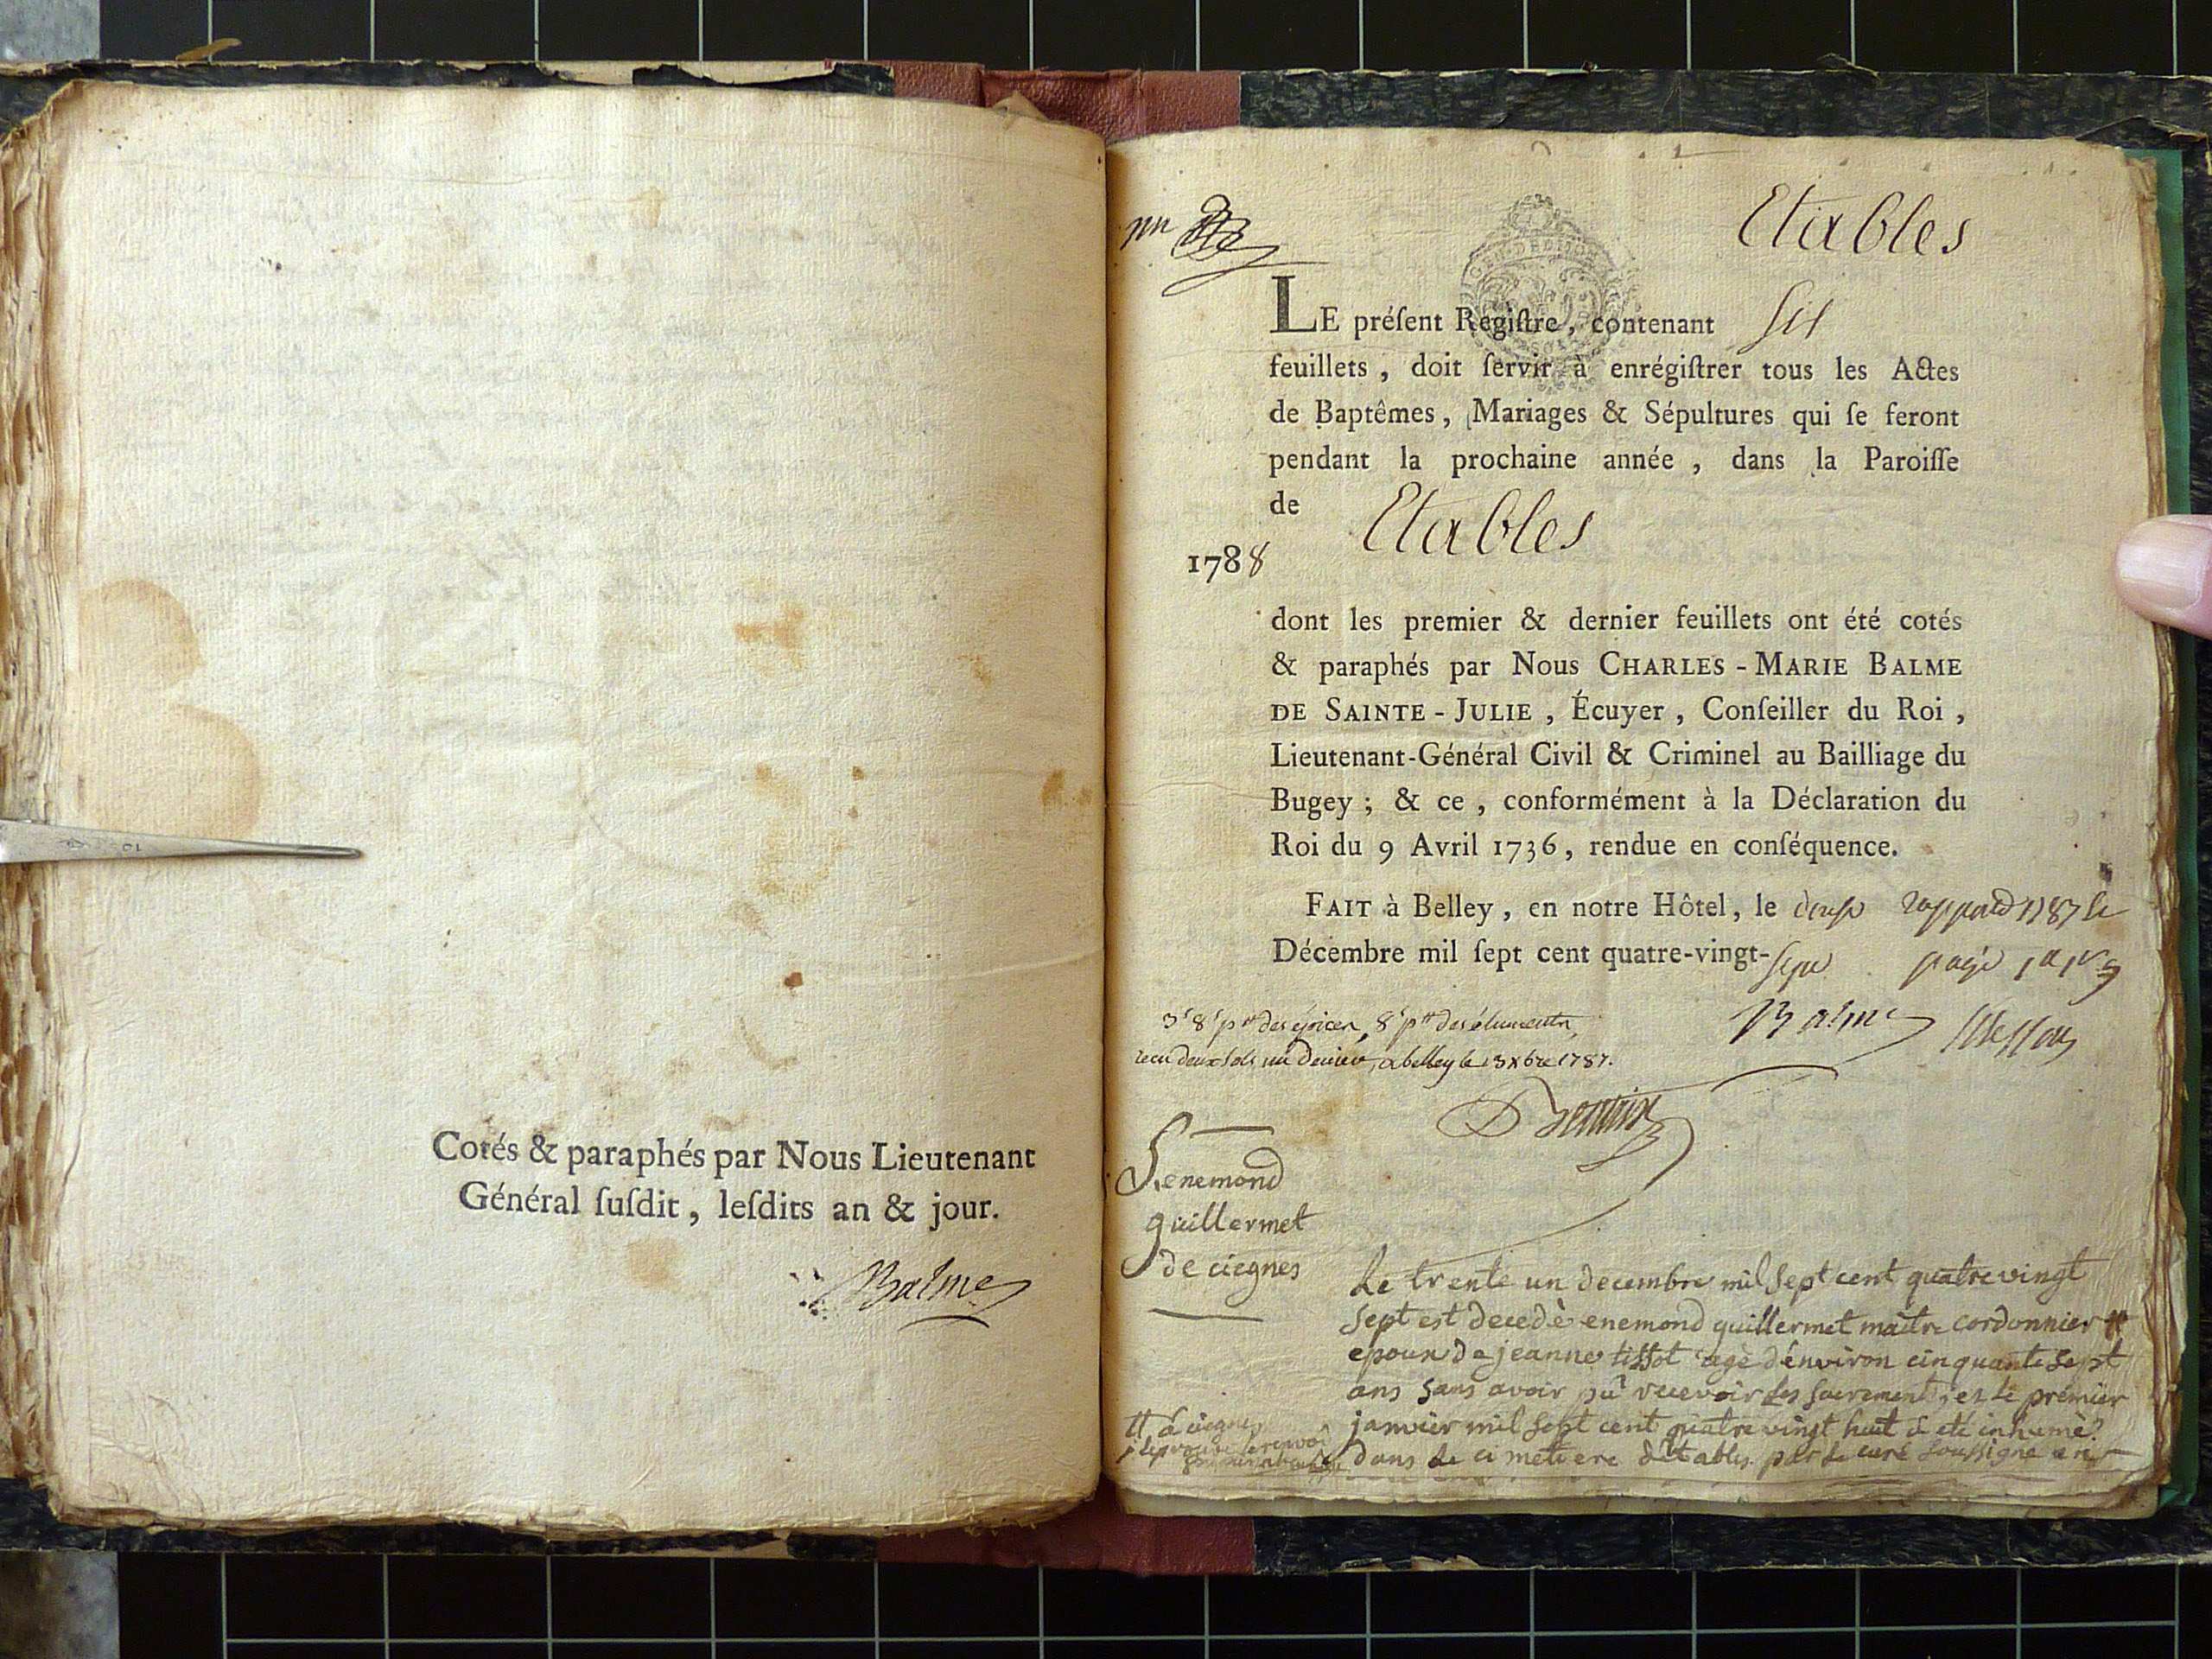 Cotés & paraphés par Nous Lieutenant
Général ſuſdit, leſdits an & jour.
Balme
Etables
LE préſent Regiſtre, contenant six
feuillets, doit ſervir à enrégiſtrer tous les Actes
de Baptêmes, Mariages & Sépultures qui ſe feront
pendant la prochaine année, dans la Paroiſſe
de Etables
1788
dont les premier & dernier feuillets ont été cotés
& paraphés par Nous CHARLES-MARIE BALME
DE SAINTE-JULIE, Écuyer, Conſeiller du Roi,
Lieutenant-Général Civil & Criminel au Bailliage du
Bugey; & ce, conformément à la Déclaration du
Roi du 9 Avril 1736, rendue en conſéquence.
FAIT à Belley, en notre Hôtel, le
Décembre mil ſept cent quatre-vingt-sept
Balme
recu deux sols un denier, a belley le 13 xbre 1787.
S. enemond
guillermet
de ciegnes
Le trente un decembre mil sept cent quatre vingt
sept est decedè enemond guillermet maitre cordonnier #
epoux de jeanne tissot agè d'environ cinquante sept
ans sans avoir pû recevoir les sacrements, et le premier
janvier mil sept cent quatre vingt huit a eté inhumè
dans le cimetiere d'Etables par le curé soussigné en
# a ciegnes